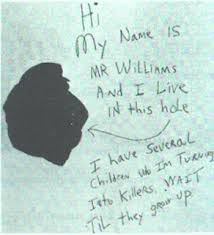 Hi
My Name is
MR Williams
And I Live
in this hole
I have Several
Children who I'm Turning
Into Killers. WAIT
TiL they grow up.